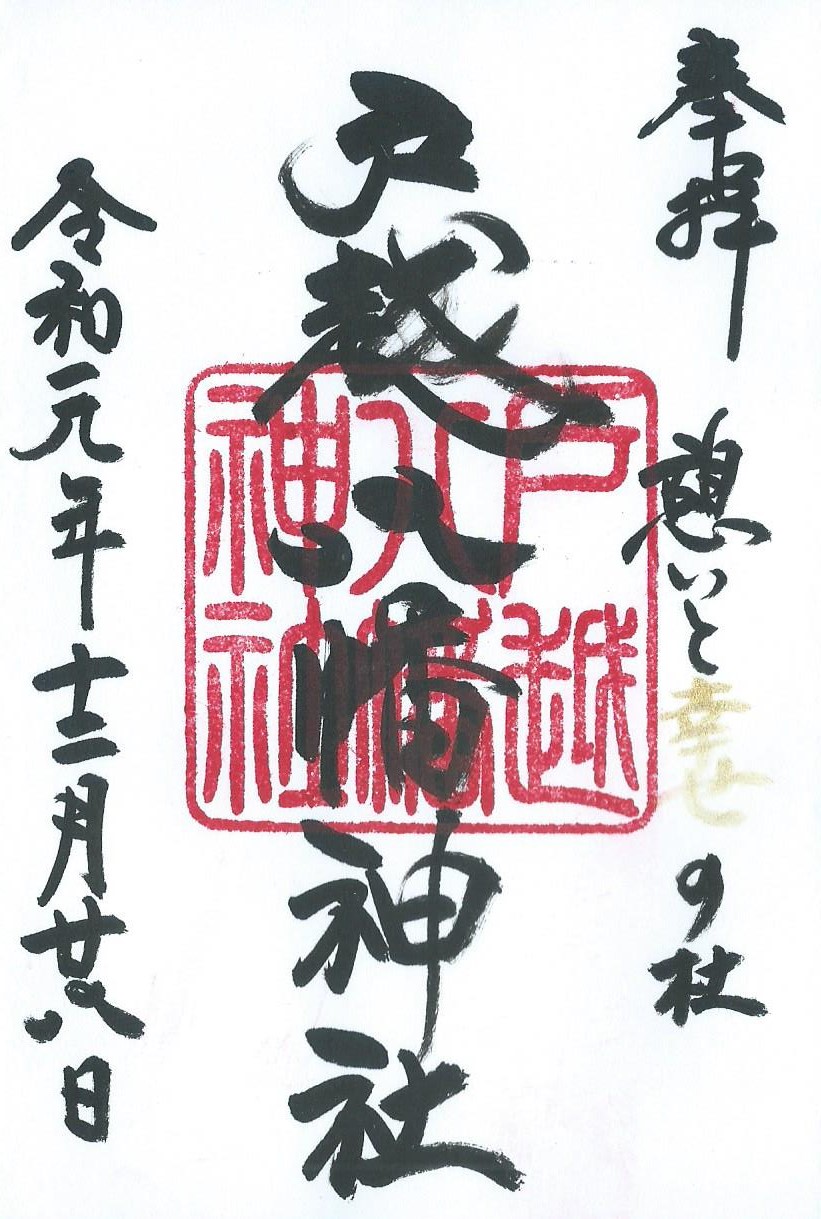 奉拝
憩いと幸せの杜
戸越八幡神社
戸越八幡神社
令和元年十二月廿八日